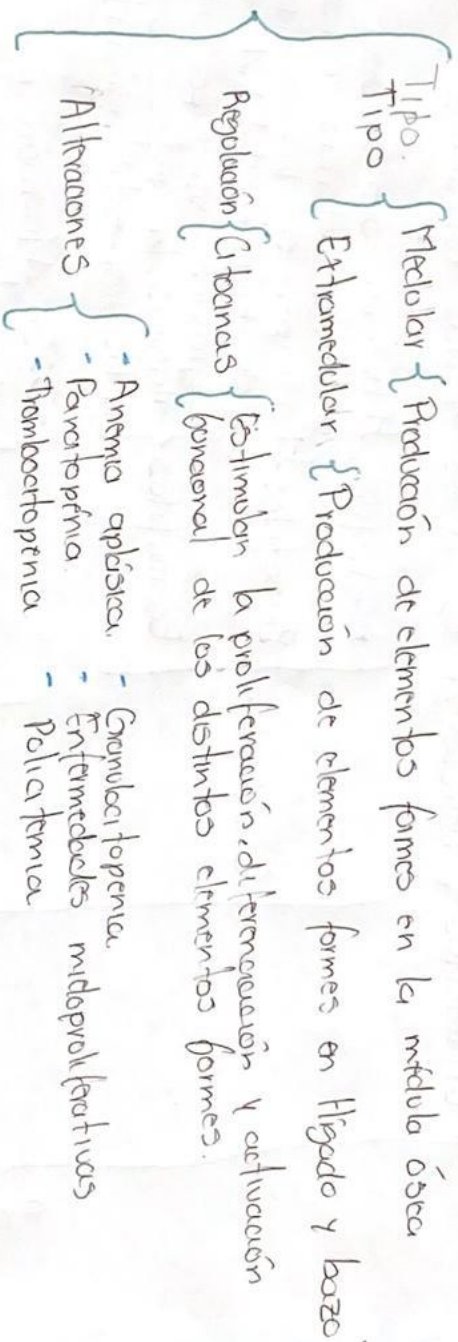 Tipo.
Tipo { Medular { Producción de elementos formes en la médula ósea
Extramedular. { Producción de elementos formes en Hígado y bazo
Regulación { Citocinas { Estimulan la proliferación, diferenciación y activación
funcional de los distintos elementos formes.
Alteraciones { - Anemia aplásica. - Granulocitopenia
- Pancitopenia. - Enfermedades mieloproliferativas
- Trombocitopenia - Policitemia